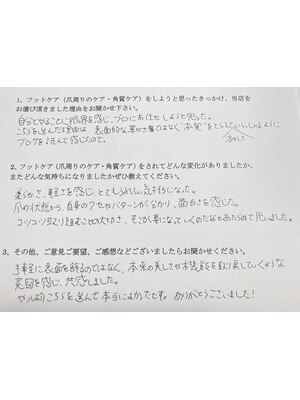 1、フットケア（爪周りのケア・角質ケア）をしようと思ったきっかけ、当店を
お選び頂きました理由をお聞かせ下さい。
自分でやることに限界を感じ、プロにお任せしようと思った。
こちらを選んだ理由は、表面的な
ではなく"本質"を
ように
ブログを読んで感じたので。
2、フットケア（爪周りのケア・角質ケア）をされてどんな変化がありましたか、
またどんな気持ちになりましたかぜひ教えてください。
柔らかさ、軽さを感じ、とてもうれしい気持ちになった。
爪の状態から、自身のクセやパターンが分かり、面白さを感じた。
コツコツ取り組むことの大切さ、そこが
になっていくのだなとあらためて思いました。
3、その他、ご意見ご要望、ご感想などございましたらお聞かせください。
手軽に表面を飾るのではなく、本来の美しさや本来
を取り戻していくような
意図を感じ、共感しました。
やっぱりこちらを選んで本当によかったです。ありがとうございました！